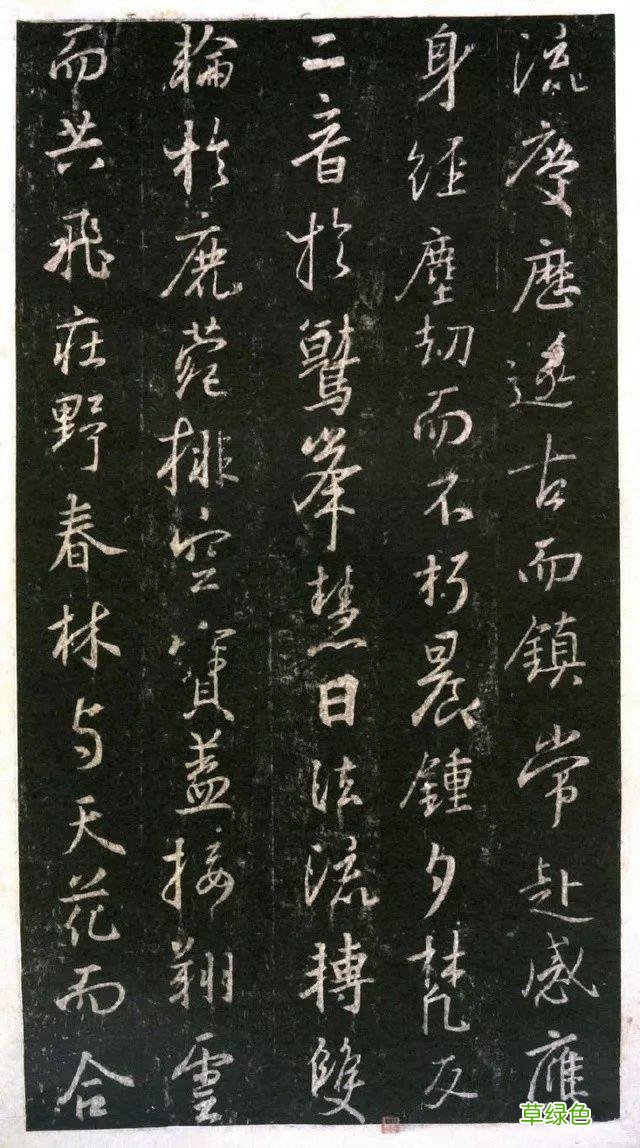 流慶歷遂古而鎮常赴感應
身經塵劫而不朽晨鍾夕梵交
二音於鷲峯慧日法流轉雙
輪於鹿菀排空寶蓋接翔雲
而共飛莊野春林与天花而合
草绿色